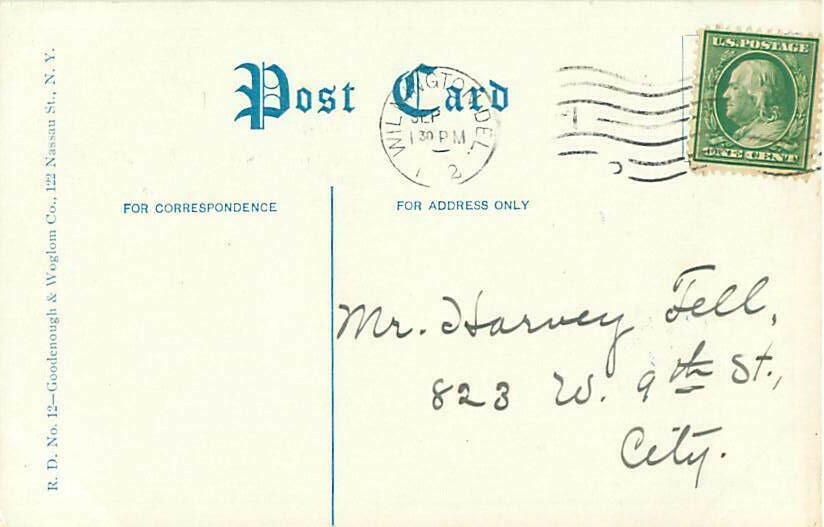 Post Card
WILMINGTON, DEL.
SEP
1 30 PM
U.S. POSTAGE
ONE CENT
FOR CORRESPONDENCE
FOR ADDRESS ONLY
Mr. Harvey Fell,
823 W. 9th St.,
City.
R. D. No. 12—Goodenough & Woglom Co., 122 Nassau St., N. Y.